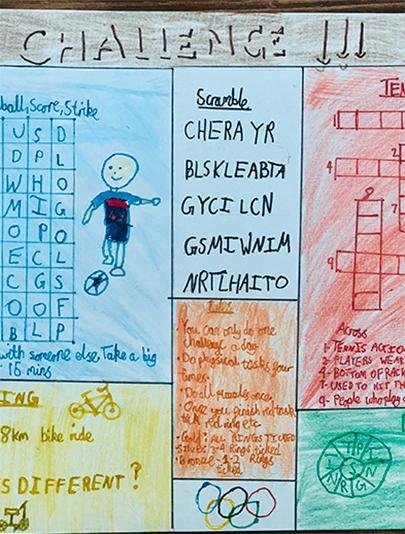 CHALLENGE !!!
ball, Score, Strike
U S D
D P L
W H O
M I G
O P O
E C L
C G S
O O F
B L P
with someone else. Take a big
15 mins
ING
8km bike ride
S DIFFERENT?
Scramble
CHERA YR
BLSKLEABTA
GYCI LCN
GSMIWNIM
NRTLHAITO
Rules
• You can only do one
challenge a day.
• Do physical tasks your
times.
• Do all puzzles once.
• Once you finish red task
tick red ring etc
• Gold: ALL RINGS TICKED
Silver: 3-4 Rings ticked
Bronze: 1-2 Rings
ticked
TEN
1
2
4
7
9
Across
1- TENNIS ACTIO
2- PLAYERS WEAR
4- BOTTOM OF RACK
7- USED TO HIT TH
9- People who play